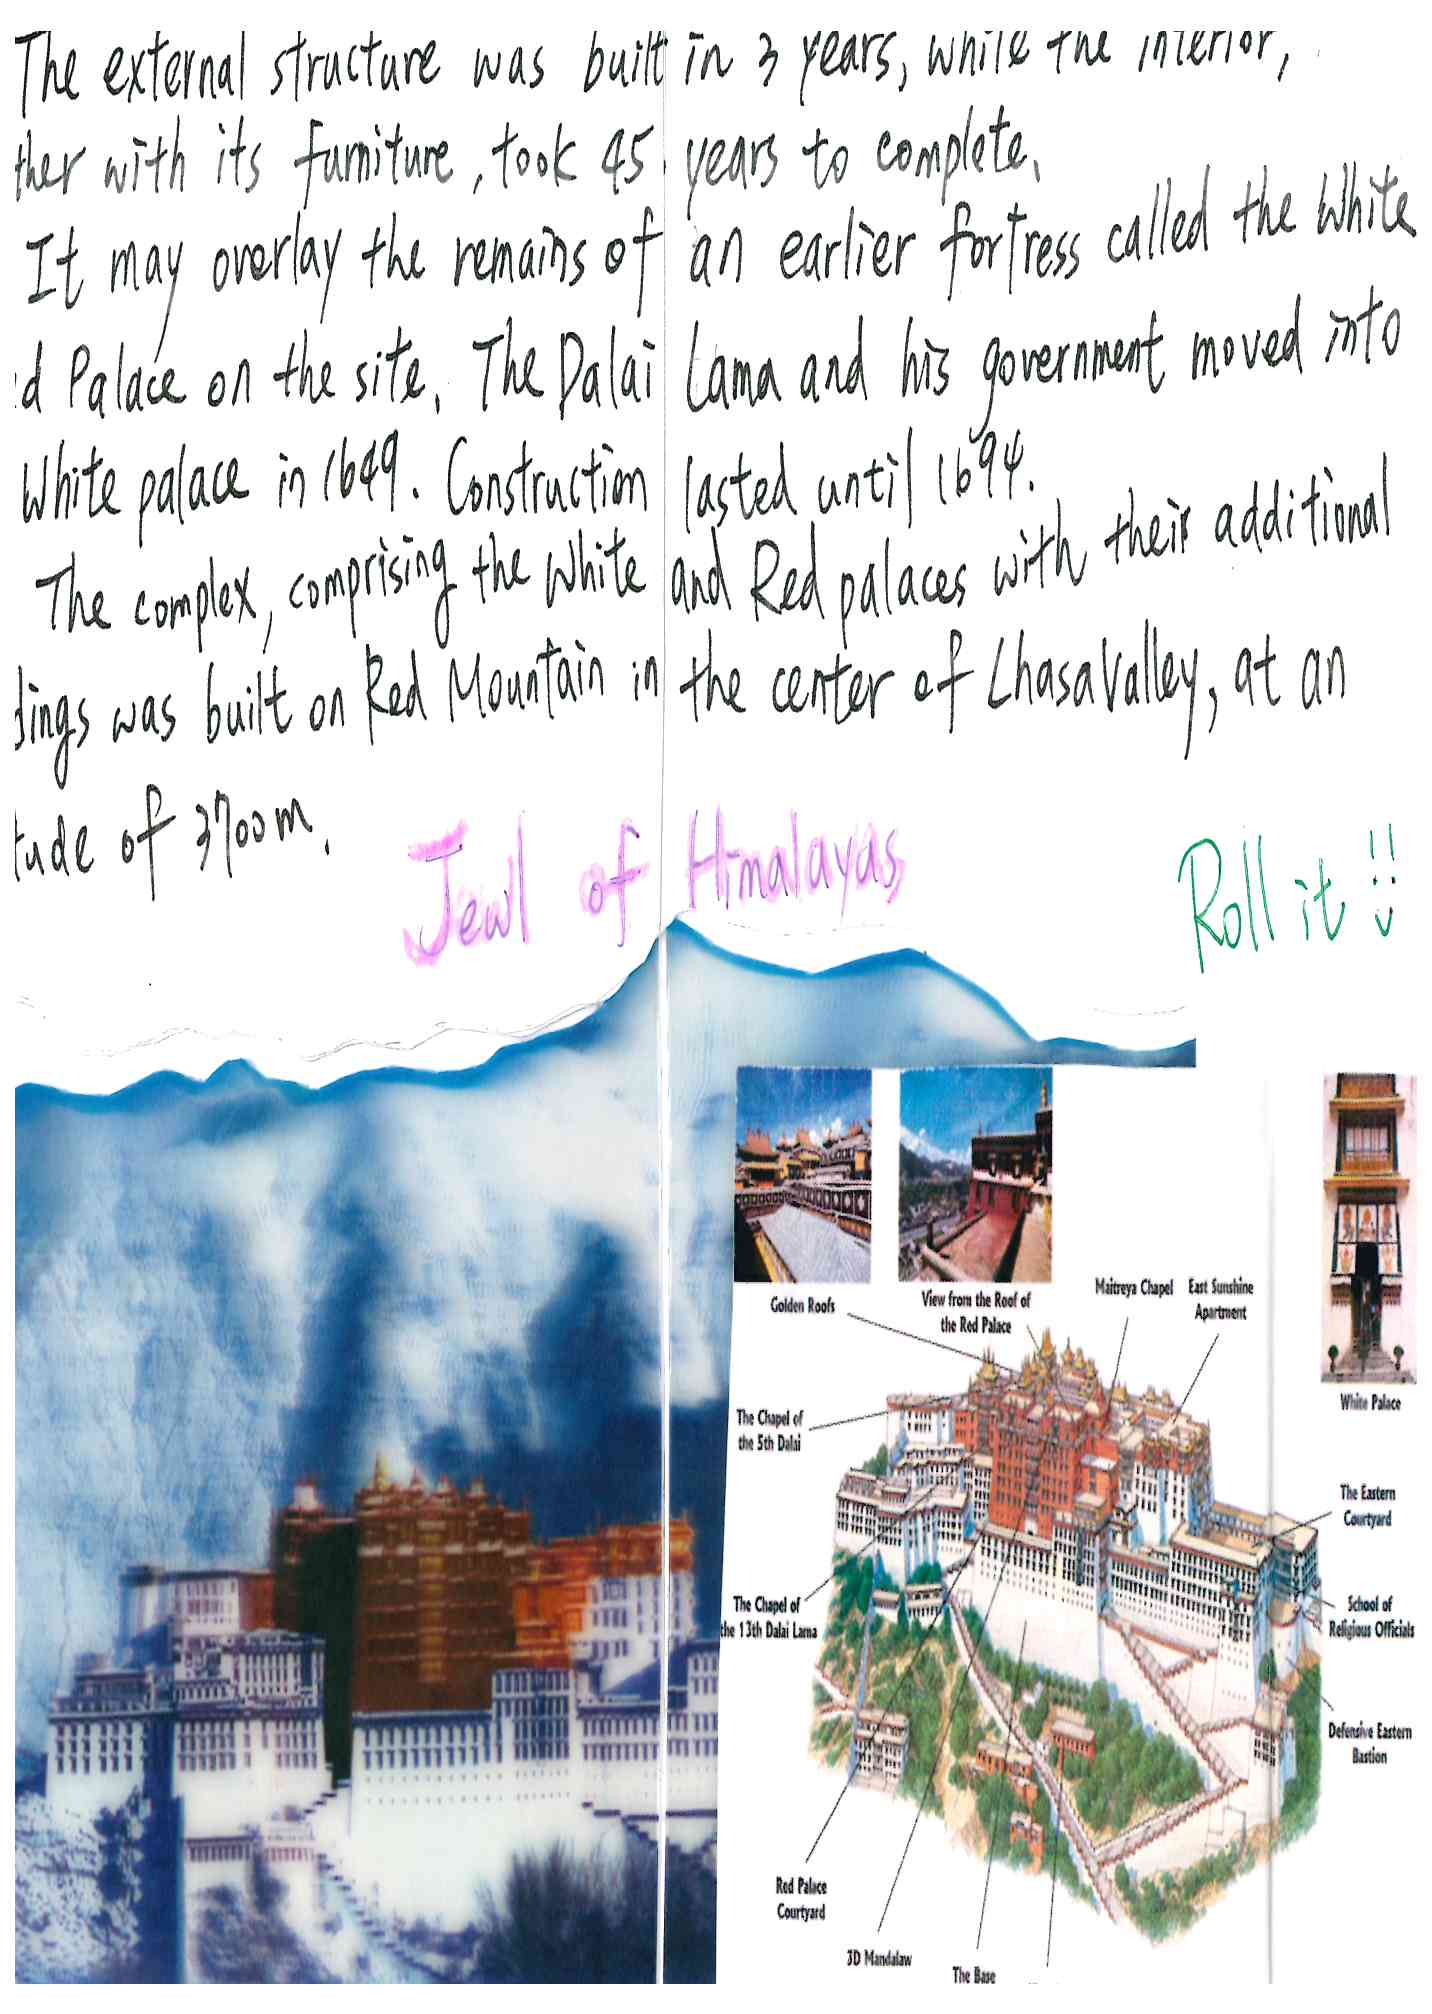 The external structure was built in 3 years, while the interior,
ther with its furniture, took 45 years to complete.
It may overlay the remains of an earlier fortress called the White
d Palace on the site. The Dalai Lama and his government moved into
White palace in 1649. Construction lasted until 1694.
The complex, comprising the White and Red palaces with their additional
dings was built on Red Mountain in the center of Lhasa Valley, at an
tude of 3700m.
Jewl of Himalayas
Roll it !!
Golden Roofs
View from the Roof of
the Red Palace
Maitreya Chapel
East Sunshine
Apartment
White Palace
The Chapel of
the 5th Dalai
The Eastern
Courtyard
The Chapel of
the 13th Dalai Lama
School of
Religious Officials
Defensive Eastern
Bastion
Red Palace
Courtyard
3D Mandalaw
The Base